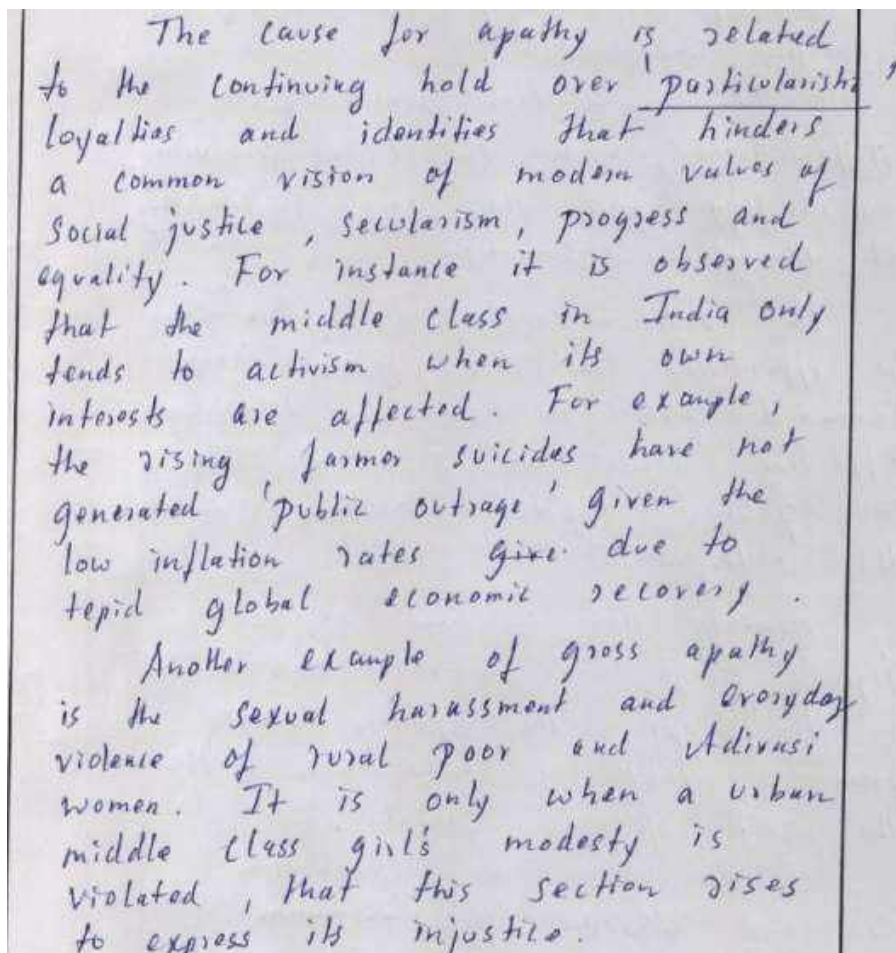 The cause for apathy is related
to the continuing hold over 'particularistic'
loyalties and identities that hinders
a common vision of modern values of
social justice, secularism, progress and
equality. For instance it is observed
that the middle class in India only
tends to activism when its own
interests are affected. For example,
the rising farmer suicides have not
generated 'public outrage' given the
low inflation rates give due to
tepid global economic recovery.
Another example of gross apathy
is the sexual harassment and everyday
violence of rural poor and Adivasi
women. It is only when a urban
middle class girl's modesty is
violated, that this section rises
to express its injustice.